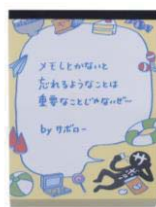 メモしとかないと
忘れるようなことは
重要なことじゃないぜー
by サボロー